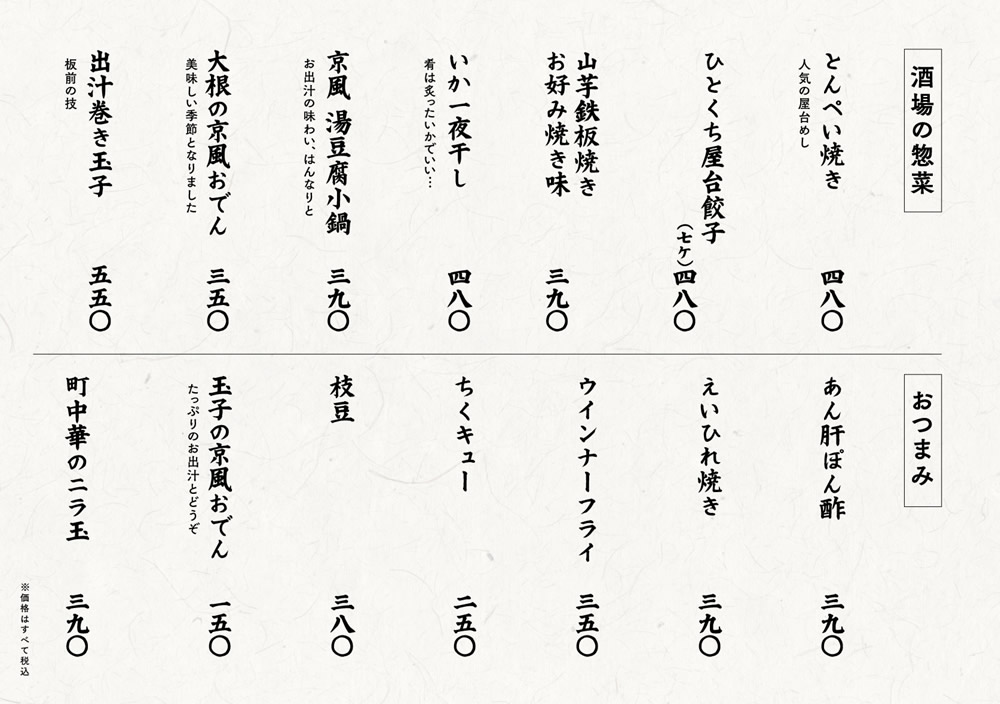 酒場の惣菜
とんぺい焼き
人気の屋台めし
四八〇
ひとくち屋台餃子
(七ケ)四八〇
山芋鉄板焼き
お好み焼き味
三九〇
いか一夜干し
肴は炙ったいかでいい…
四八〇
京風 湯豆腐小鍋
お出汁の味わい、はんなりと
三九〇
大根の京風おでん
美味しい季節となりました
三五〇
出汁巻き玉子
板前の技
五五〇
おつまみ
あん肝ぽん酢
三九〇
えいひれ焼き
三九〇
ウインナーフライ
三五〇
ちくキュー
二五〇
枝豆
三八〇
玉子の京風おでん
たっぷりのお出汁とどうぞ
一五〇
町中華のニラ玉
三九〇
※価格はすべて税込